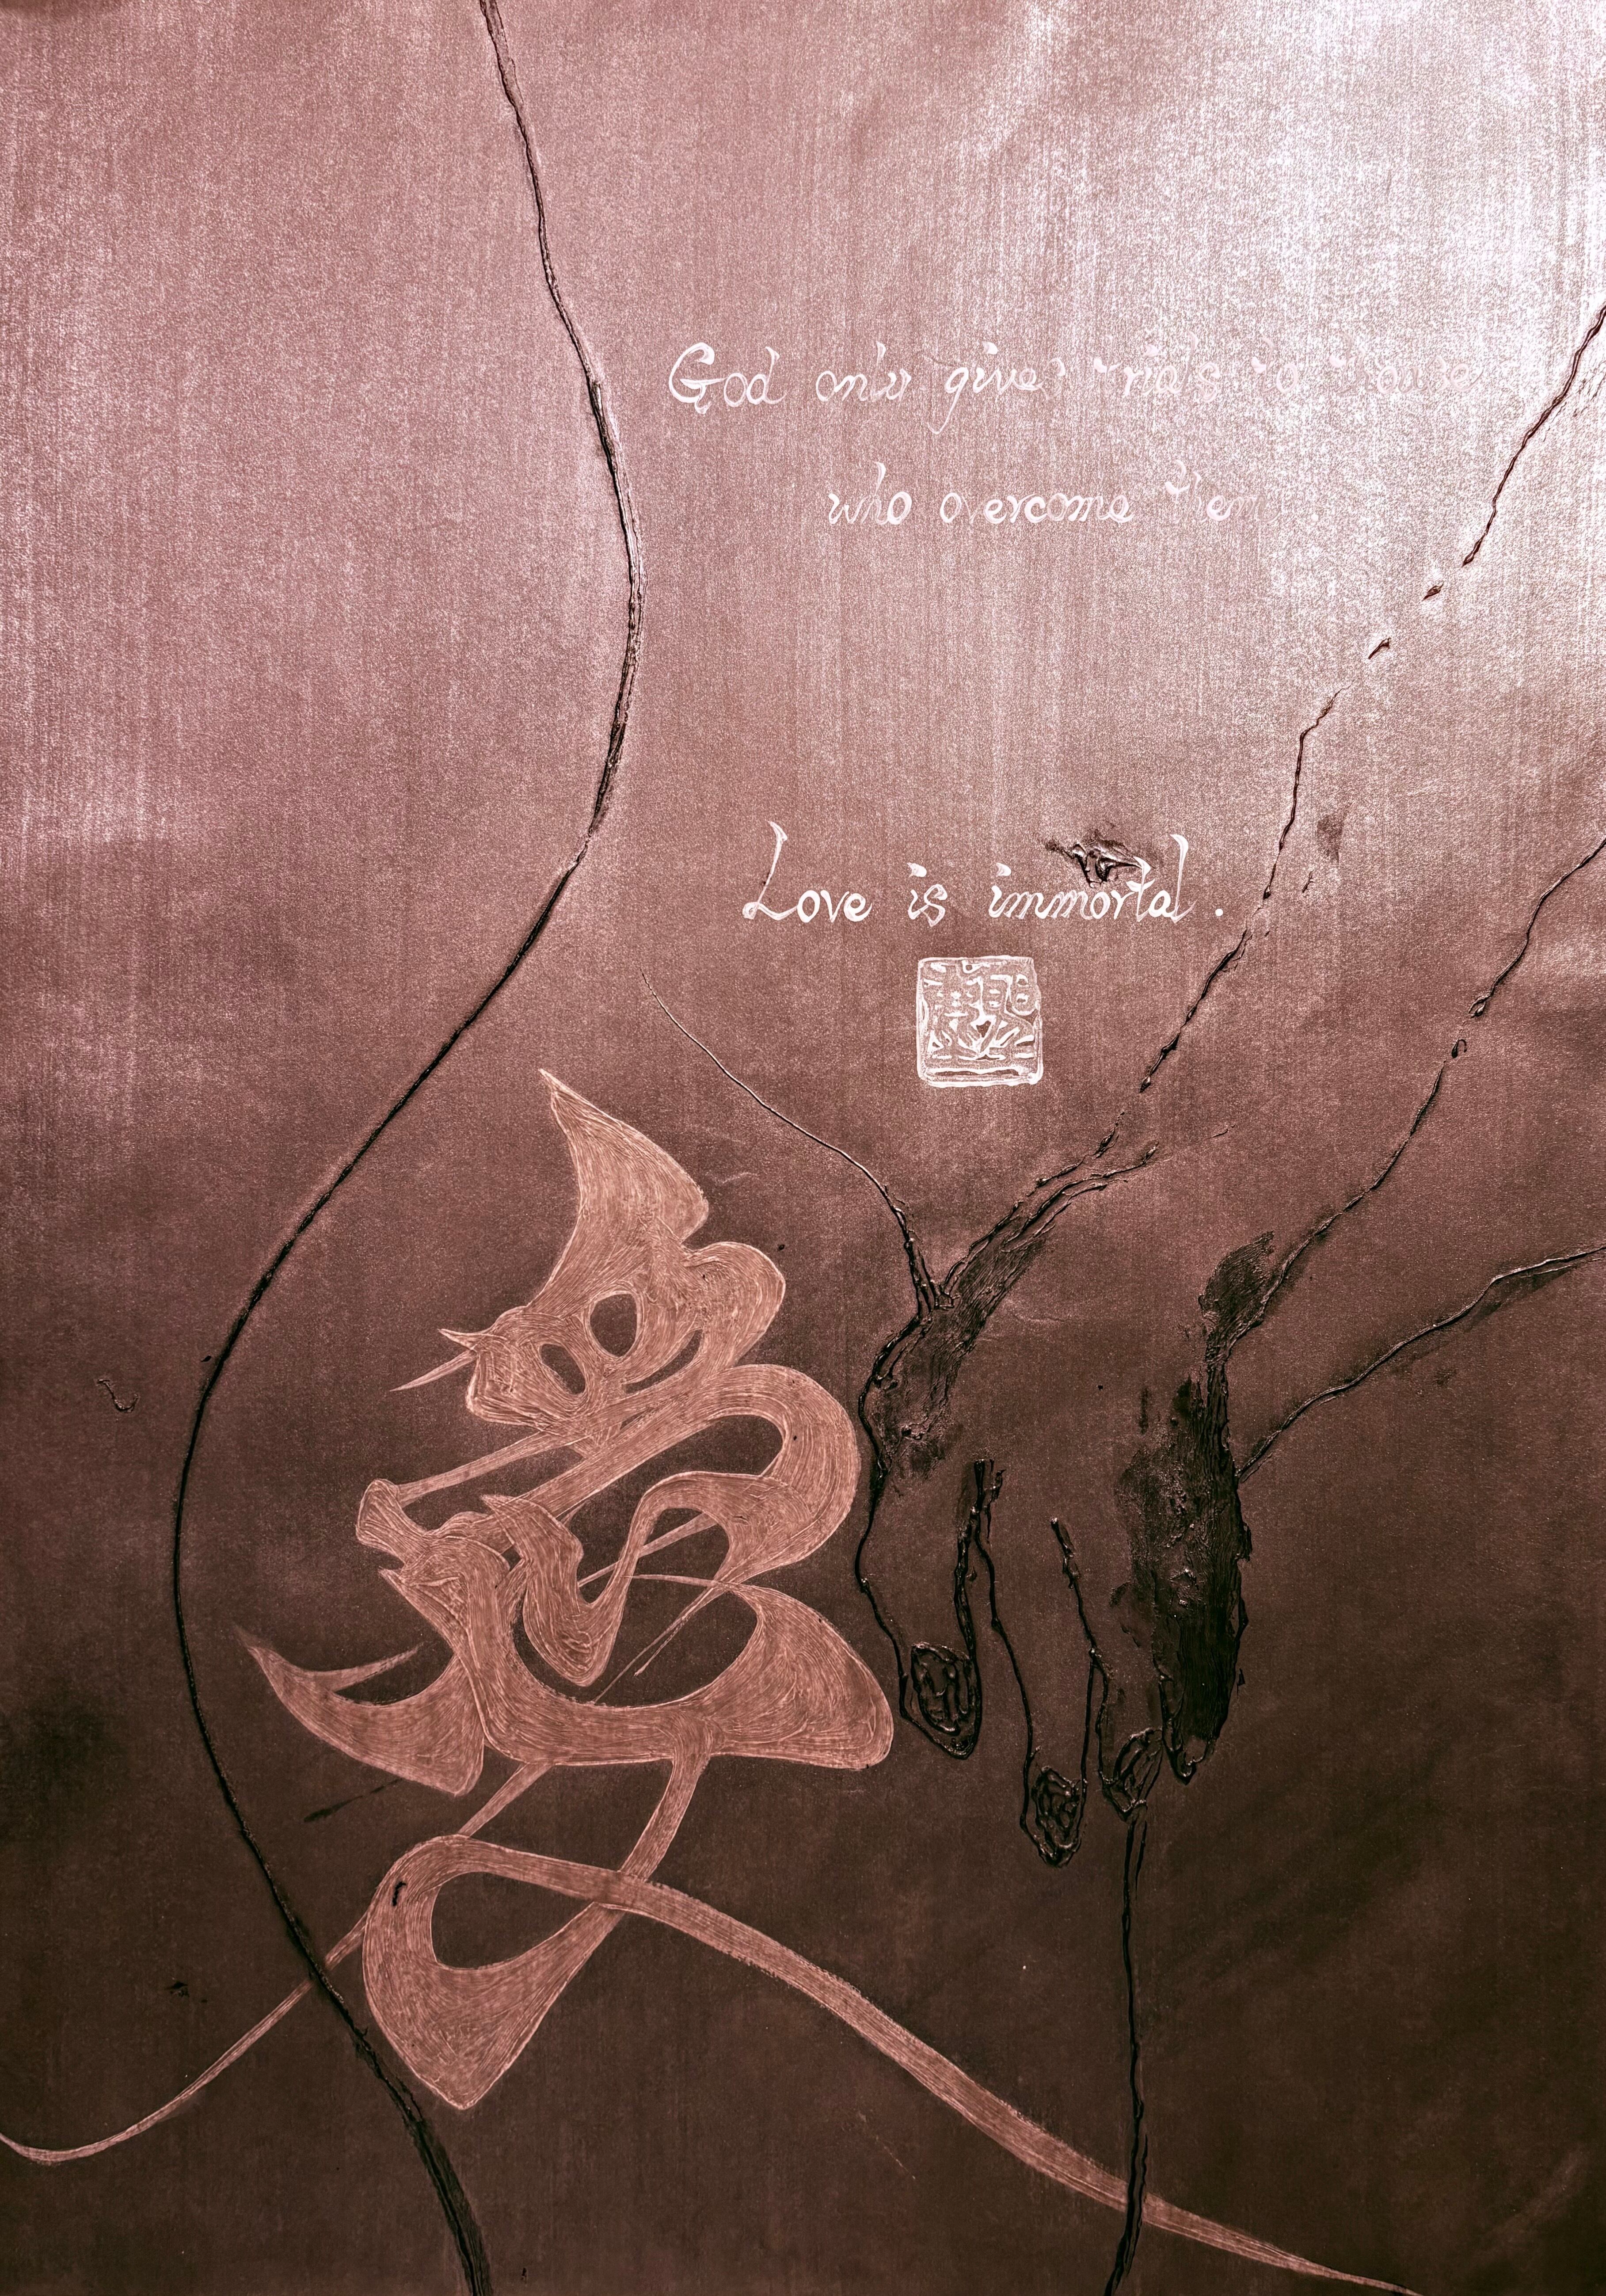 God only gives trials to those
who overcome them
Love is immortal.
愛